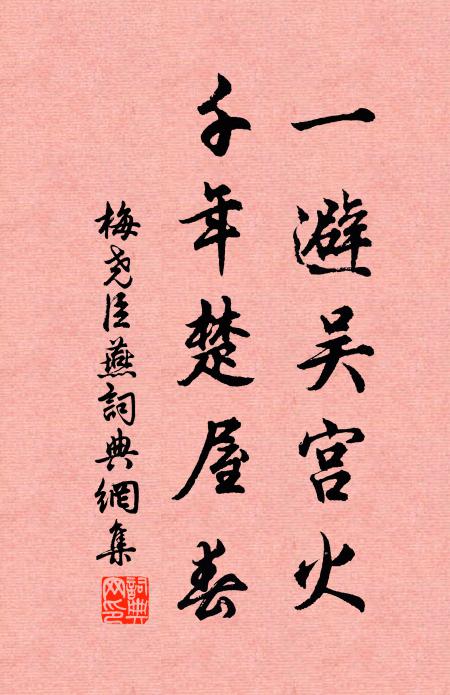 一避吴宫火
千年楚屋春
梅尧臣燕詞典網集
詞典
网印